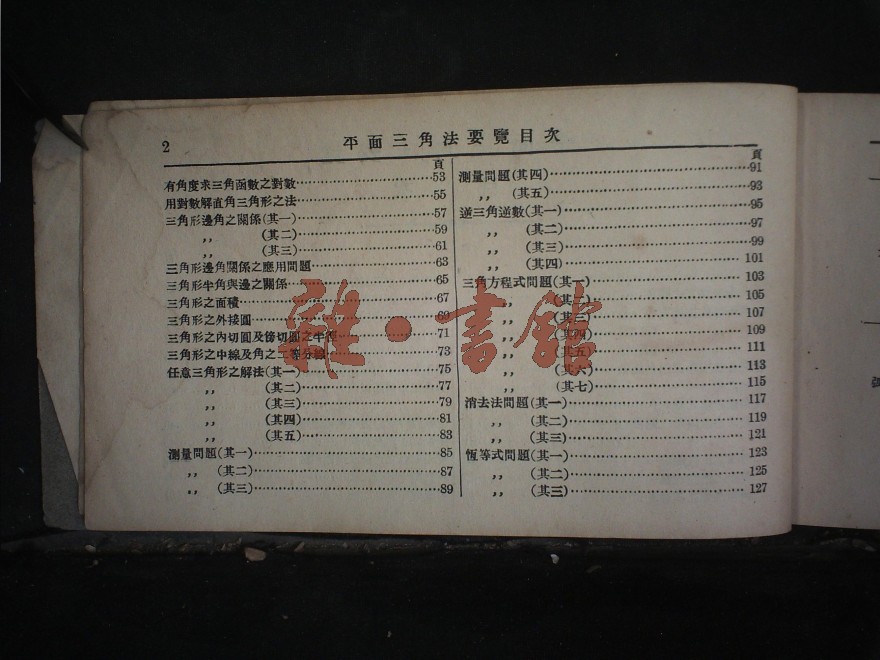 2
平面三角法要覽目次
頁
有角度求三角函數之對數 53
用對數解直角三角形之法 55
三角形邊角之關係(其一) 57
,, (其二) 59
,, (其三) 61
三角形邊角關係之應用問題 63
三角形半角與邊之關係 65
三角形之面積 67
三角形之外接圓 69
三角形之內切圓及傍切圓之半徑 71
三角形之中線及角之二等分線 73
任意三角形之解法(其一) 75
,, (其二) 77
,, (其三) 79
,, (其四) 81
,, (其五) 83
測量問題(其一) 85
,, (其二) 87
,, (其三) 89
頁
測量問題(其四) 91
,, (其五) 93
逆三角逆數(其一) 95
,, (其二) 97
,, (其三) 99
,, (其四) 101
三角方程式問題(其一) 103
,, (其二) 105
,, (其三) 107
,, (其四) 109
,, (其五) 111
,, (其六) 113
,, (其七) 115
消去法問題(其一) 117
,, (其二) 119
,, (其三) 121
恆等式問題(其一) 123
,, (其二) 125
,, (其三) 127
雜·書館